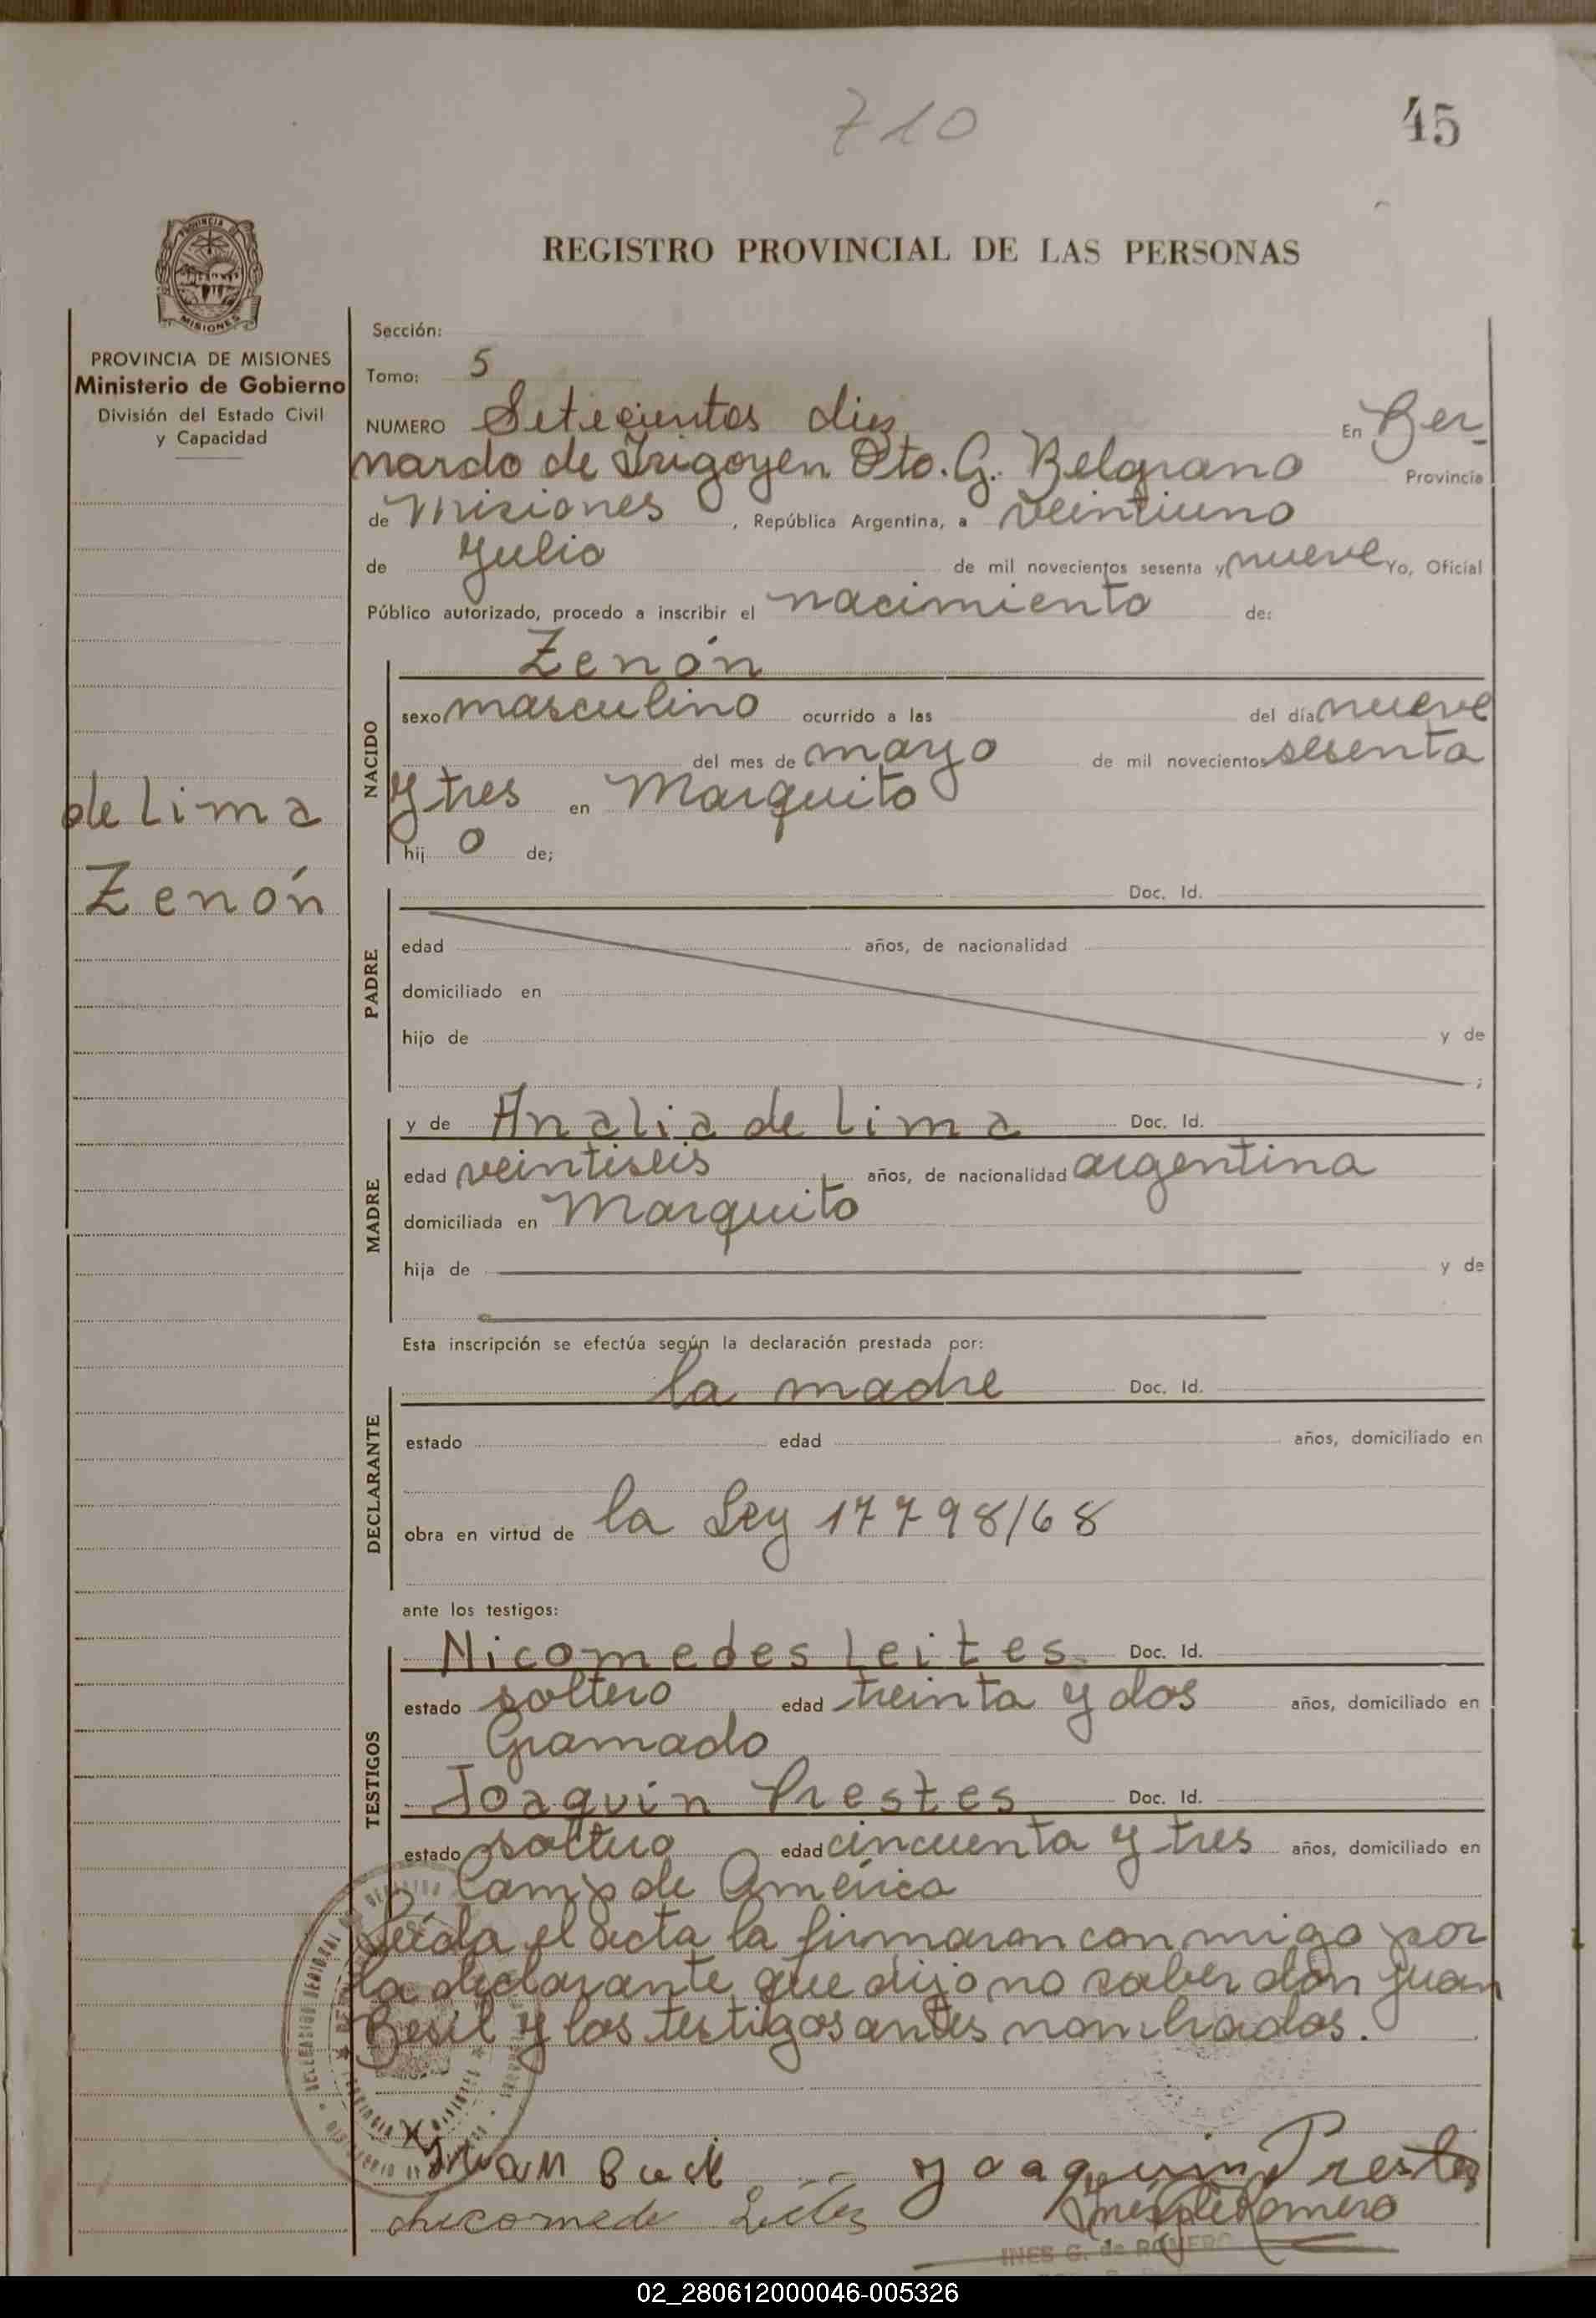 710
45
PROVINCIA
MISIONES
REGISTRO PROVINCIAL DE LAS PERSONAS
PROVINCIA DE MISIONES
Ministerio de Gobierno
División del Estado Civil
y Capacidad
de Lima
Zenón
Sección:
Tomo: 5
NUMERO Setecientos diez En Ber-
nardo de Irigoyen Dto. G. Belgrano Provincia
de Misiones, República Argentina, a veintiuno
de Julio de mil novecientos sesenta y nueve Yo, Oficial
Público autorizado, procedo a inscribir el nacimiento de:
NACIDO
Zenón
sexo masculino ocurrido a las del día nueve
del mes de mayo de mil novecientos sesenta
y tres en Marquito
hij o de;
PADRE
Doc. Id.
edad años, de nacionalidad
domiciliado en
hijo de y de
;
MADRE
y de Analia de Lima Doc. Id.
edad veintiseis años, de nacionalidad argentina
domiciliada en Marquito
hija de y de
Esta inscripción se efectúa según la declaración prestada por:
DECLARANTE
la madre Doc. Id.
estado edad años, domiciliado en
obra en virtud de la Ley 17798/68
ante los testigos:
TESTIGOS
Nicomedes Leites Doc. Id.
estado soltero edad treinta y dos años, domiciliado en
Gramado
Joaquin Prestes Doc. Id.
estado soltero edad cincuenta y tres años, domiciliado en
de América
Leída el acta la firmaron conmigo por
la declarante que dijo no saber don Juan
Besil y los testigos antes nombrados.
Juan Joaquin Prestes
Leites Ines G de Romero
INES G. de ROMERO
02_280612000046-005326